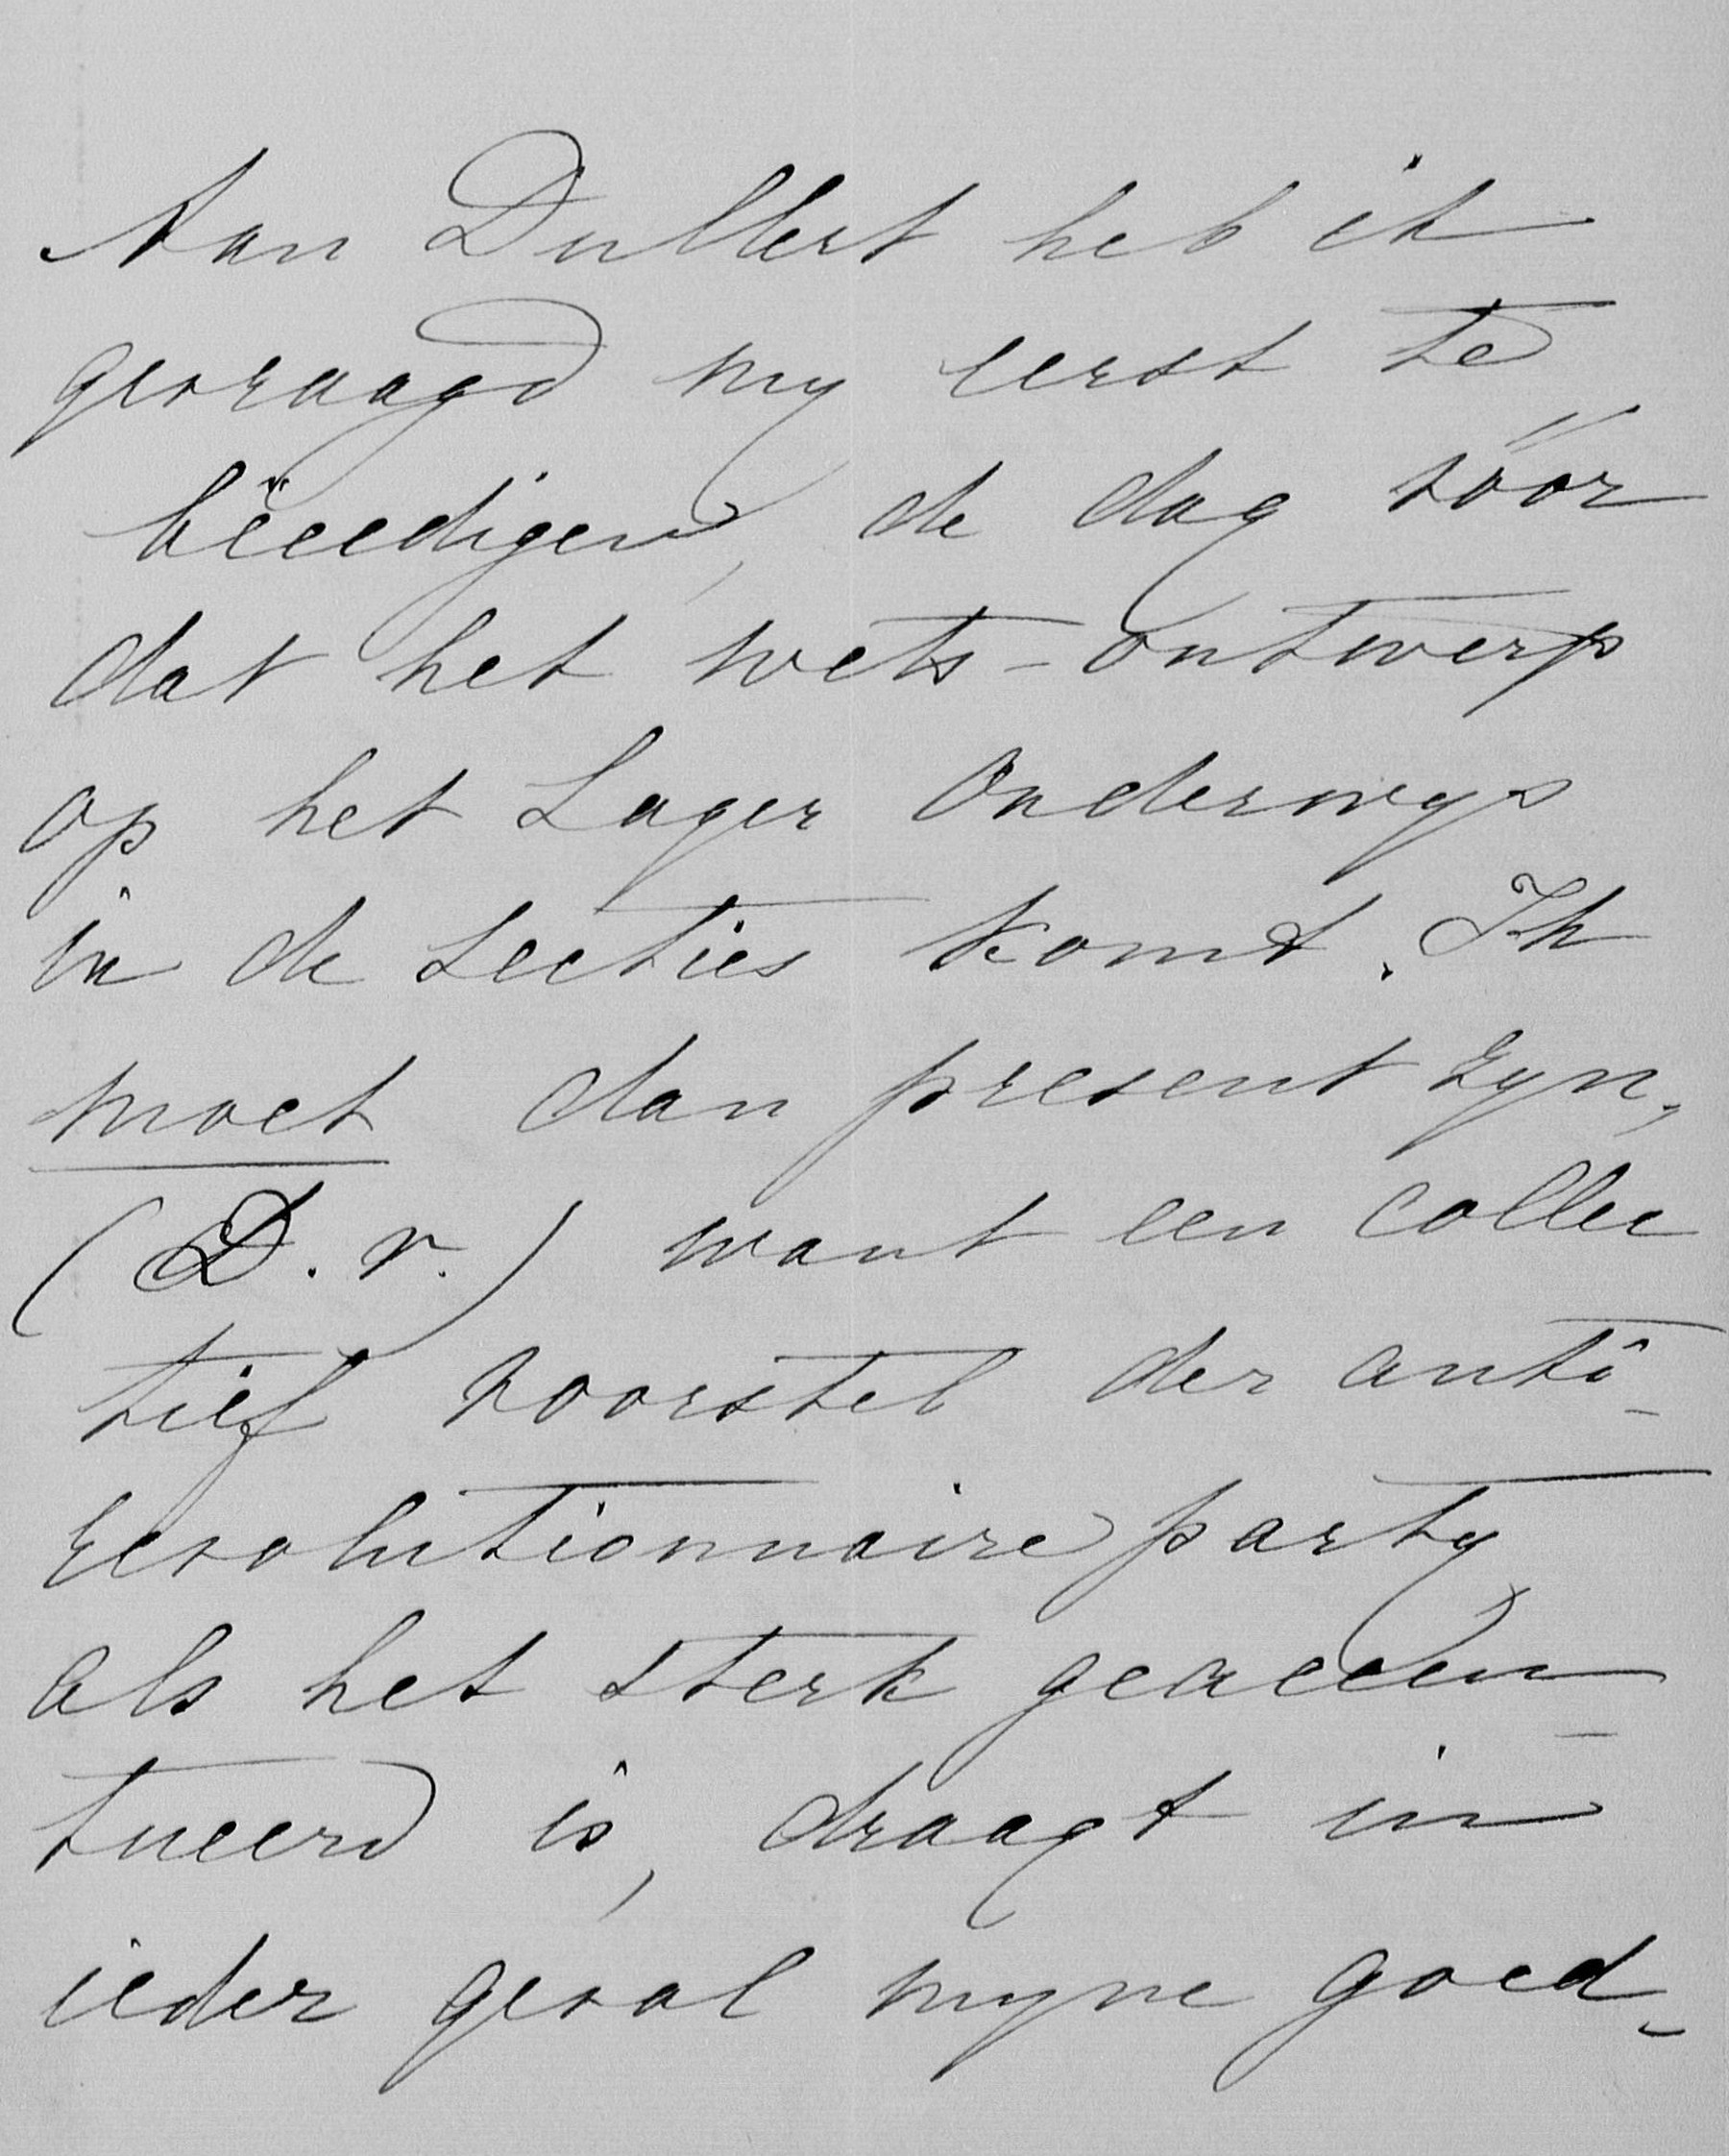 Aan Dullert heb ik
gevraagd my eerst te
beëedigen, de dag vóór
dat het wets-ontwerp
op het Lager Onderwys
in de Secties komt. Ik
moet dan present zyn,
(D. v.) want een collec
tief voorstel der anti-
revolutionnaire party
als het sterk geaccen-
tueerd is, draagt in
ieder geval myne goed-